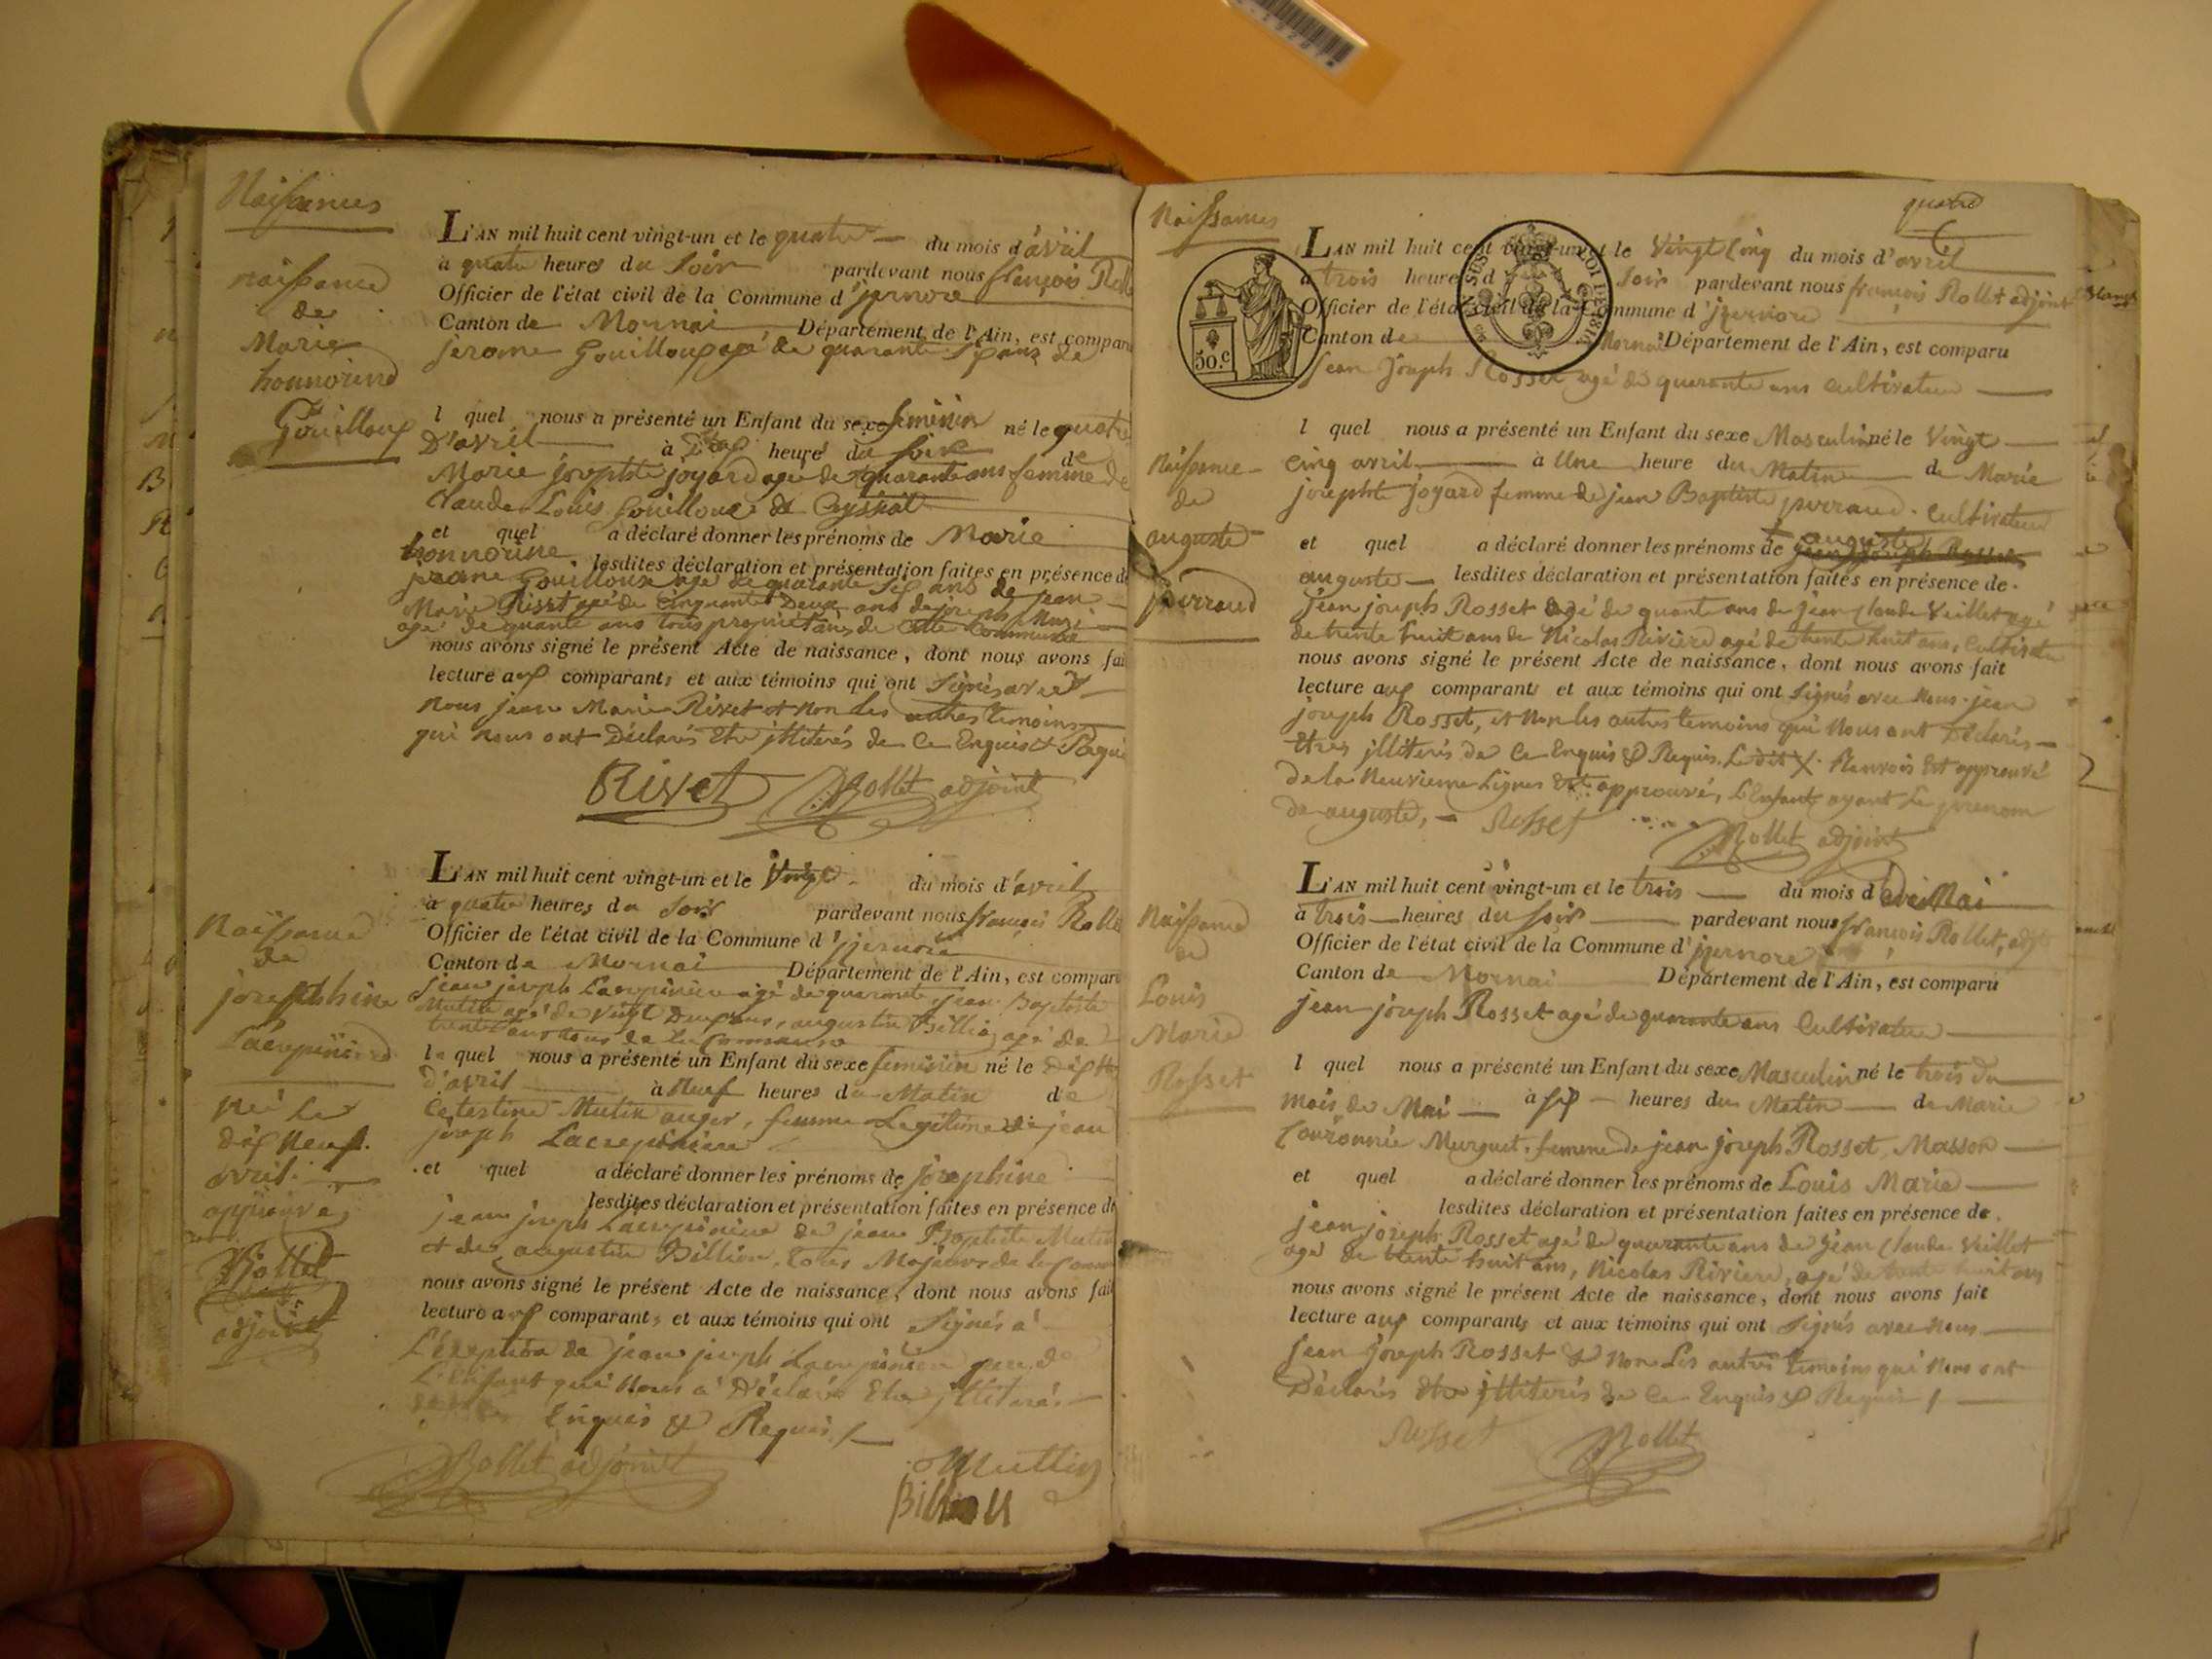 Naissances
naissance
de
Marie
honnorine
Gouilloux
L'AN mil huit cent vingt-un et le quatre du mois d'avril
a quatre heures du Soir pardevant nous françois Roll
Officier de l'état civil de la Commune d'jzernore
Canton de Mornai Département de l'Ain, est compar
jerome Gouilloux agé de quarante Six ans de
l quel nous a présenté un Enfant du sexe feminin né le quatre
D'avril à heure du Soir de
Marie josephte joyard agée de quarante ans femme de
Claude Louis Gouilloux de
et quel a déclaré donner les prénoms de Marie
honnorine lesdites déclaration et présentation faites en présence de
jerome Gouilloux agé de quarante Six ans de jean
Marie Rivet agé de Cinquante Deux ans de joseph
agé de quante ans tous proprietaires de Cette Commune
nous avons signé le présent Acte de naissance, dont nous avons fai
lecture aux comparants et aux témoins qui ont Signés avec
Nous jean Marie Rivet et non les autres temoins
qui nous ont Déclarés Etre jlliterés de Ce Enquis & Requi
Rivet Rollet adjoint
Naissance
de
josephine
Lacrepiniere
né le
dix neuf
avril
approuvé
Rollet
adjoint
L'AN mil huit cent vingt-un et le Vingt du mois d'avril
a quatre heures du Soir pardevant nous françois Rolle
Officier de l'état civil de la Commune d'jzernore
Canton de Mornai Département de l'Ain, est compar
jean joseph Lacrepiniere agé de quarante, jean Baptiste
Mutin agé de Vingt Deux ans, augustin Billion agé de
trente ans tous de la Commune
le quel nous a présenté un Enfant du sexe feminin né le
d'avril à Neuf heures du Matin de
Celestine Mutin auger, femme Legitime de jean
joseph Lacrepiniere
et quel a déclaré donner les prénoms de josephine
lesdites déclaration et présentation faites en présence de
jean joseph Lacrepiniere de jean Baptiste Mutin
et de augustin Billion, tous Majeurs de la Comm
nous avons signé le présent Acte de naissance, dont nous avons fai
lecture aux comparants et aux témoins qui ont Signés a
L'exeption de jean joseph Lacrepiniere pere de
L'Enfant qui Nous a Déclaré Etre jlliteré
Enquis & Requis
Rollet adjoint Muttin
Billion
quatre
Naissances
L'AN mil huit cent vingt-un et le Vingt Cinq du mois d'avril
a trois heures d Soir pardevant nous françois Rollet adjoint
Officier de l'état civil de la Commune d'jzernore
Canton de Mornai Département de l'Ain, est comparu
50.c
jean joseph Rosset agé de quarante ans Cultivateur
l quel nous a présenté un Enfant du sexe Masculin né le Vingt
Naissance
de
auguste
perraud
Cinq avril à Une heure du Matin de Marie
josephte joyard femme de jean Baptiste perraud. Cultivateur
auguste
et quel a déclaré donner les prénoms de jean joseph Rosset
auguste lesdites déclaration et présentation faites en présence de
jean joseph Rosset agé de quante ans de jean Claude Veillet agé
de trente huit ans de Nicolas Riviere agé de trente huit ans, Cultivate
nous avons signé le présent Acte de naissance, dont nous avons fait
lecture aux comparants et aux témoins qui ont Signés avec Nous jean
joseph Rosset, et Non les autres temoins qui Nous ont Déclarés
Etres jlliterés de Ce Enquis & Requis. Le dit X Renvois Est approuvé
De la Neuvieme Lignes Est approuvé, L'Enfant ayant Le prenom
de auguste,
Rosset Rollet adjoint
Naissance
de
Louis
Marie
Rosset
L'AN mil huit cent vingt-un et le trois du mois d Mai
à trois heures du Soir pardevant nous françois Rollet, adjt
Officier de l'état civil de la Commune d'jzernore
Canton de Mornai Département de l'Ain, est comparu
jean joseph Rosset agé de quarante ans Cultivateur
l quel nous a présenté un Enfant du sexe Masculin né le trois du
Mois de Mai à Six heures du Matin de Marie
Couronnée Murguet, femme de jean joseph Rosset, Masson
et quel a déclaré donner les prénoms de Louis Marie
lesdites déclaration et présentation faites en présence de
jean joseph Rosset agé de quarante ans de jean Claude Veillet
agé de trente huit ans, Nicolas Riviere, agé de trente huit ans
nous avons signé le présent Acte de naissance, dont nous avons fait
lecture aux comparants et aux témoins qui ont Signés avec Nous
jean joseph Rosset & Non Les autres temoins qui Nous ont
Déclarés Etre jlliterés de Ce Enquis & Requis
Rosset Rollet